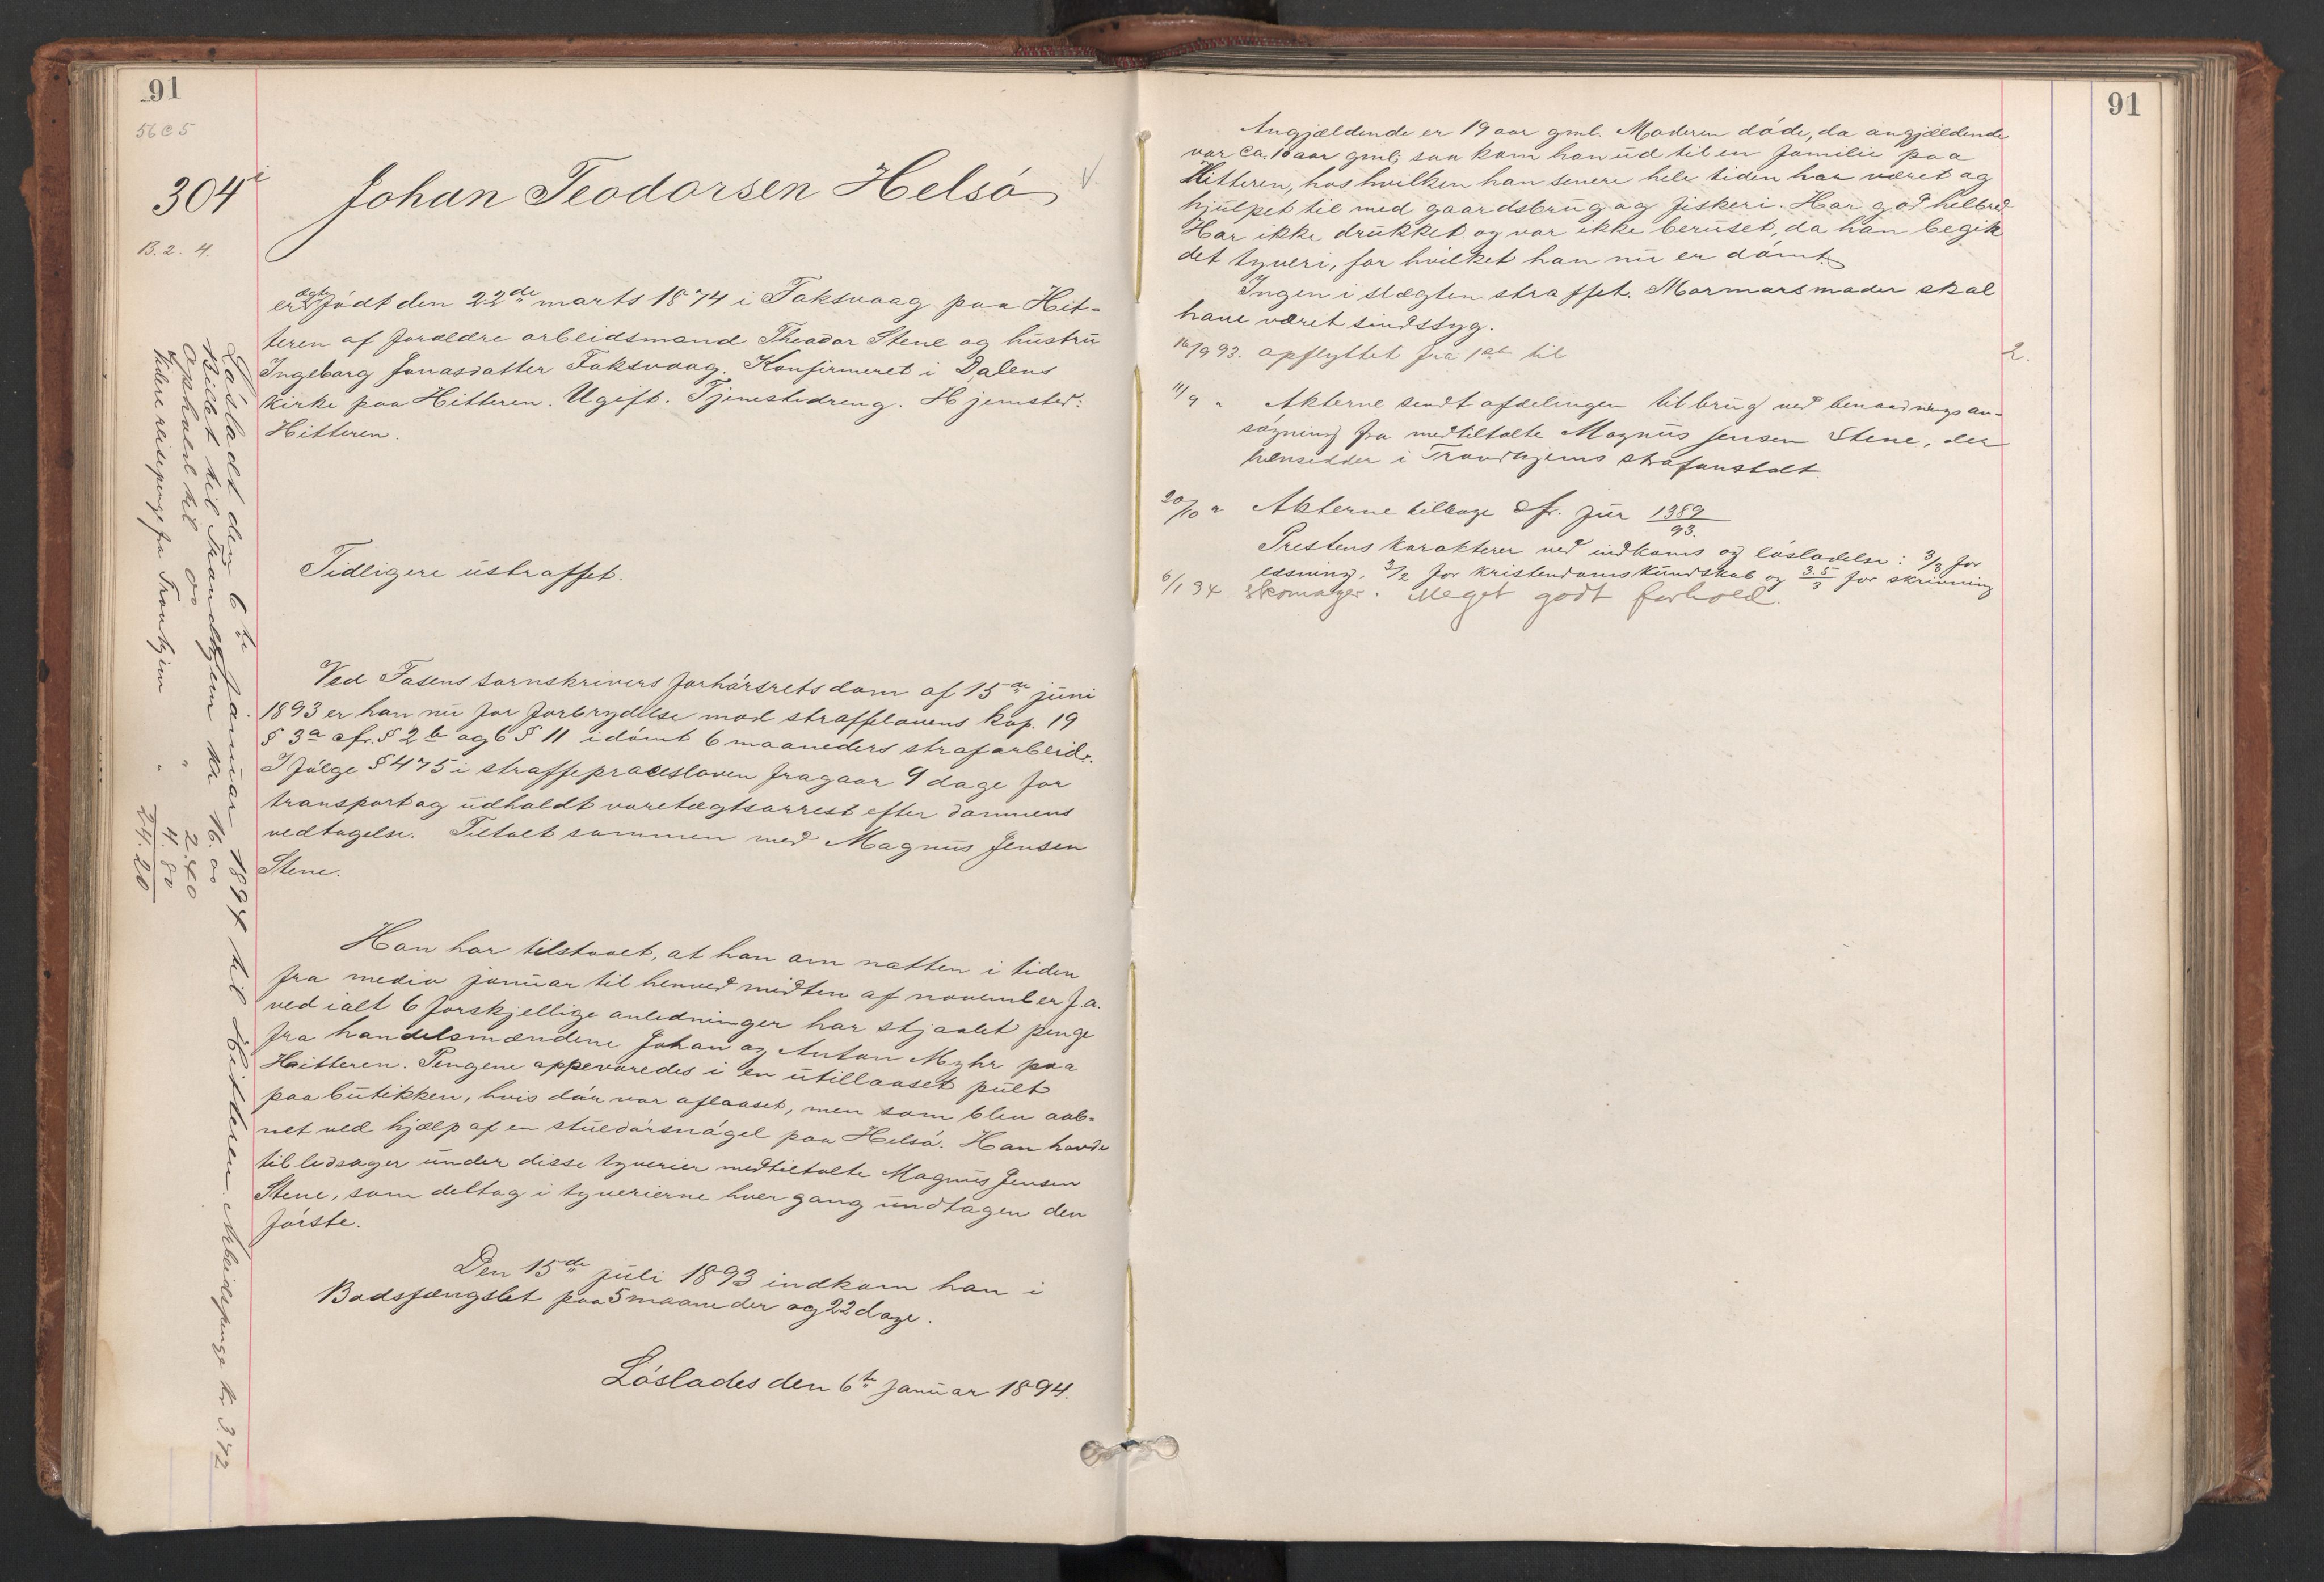 91
56 C 5
304 i
B. 2. 4.
Johan Teodorsen Helsö
er ægte født den 22de marts 1874 i Faksvaag paa Hit-
teren af forældre arbeidsmand Theodor Stene og hustru
Ingeborg Jonasdatter Faksvaag. Konfirmeret i Dalens
kirke paa Hitteren. Ugift. Tjenestedreng. Hjemsted:
Hitteren.
Tidligere ustraffet.
Ved Fosens sorenskrivers forhørsretsdom af 15de juni
1893 er han nu for forbrydelse mod straffelovens kap. 19
§ 3a cfr. § 2 b og 6 § 11 idømt 6 maaneders strafarbeide.
Ifølge § 475 i straffeprocesloven fragaar 9 dage for
transport og udholdt varetægtsarrest efter dommens
vedtagelse. Tiltalt sammen med Magnus Jensen
Stene.
Han har tilstaaet, at han om natten i tiden
fra medio januar til henved midten af november f.a.
ved ialt 6 forskjellige anledninger har stjaalet penge
fra handelsmændene Johan og Anton Myhr paa
Hitteren. Pengene oppevaredes i en utillaaset pult
paa butikken, hvis dør var aflaaset, men som blev aab-
net ved hjælp af en stuedørsnøgel paa Helsö. Han havde
til ledsager under disse tyverier medtiltalte Magnus Jensen
Stene, som deltog i tyverierne hver gang undtagen den
første.
Den 15de juli 1893 indkom han i
Bodsfængslet paa 5 maaneder og 22 dage.
Løslades den 6te Januar 1894.
Løsladt den 6te Januar 1894 til Hitteren. Arbeidspenge kr 3.42
Billet til Trondhjem kr 16.00
Ophold til do " 2.40
Videre reisepenge fra Trondhjem " 4.80
24.20
91
Angjældende er 19 aar gml. Moderen døde, da angjældende
var ca. 10 aar gml; saa kom han ud til en familie paa
Hitteren, hos hvilken han senere hele tiden har været og
hjulpet til med gaardsbrug og fiskeri. Har god helbred
Har ikke drukket og var ikke beruset, da han begik
det tyveri, for hvilket han nu er dømt.
Ingen i slægten straffet. Mormorsmoder skal
have været sindssyg.
16/9 93. opflyttet fra 1ste til 2.
11/9 " Akterne sendt afdelingen til brug ved benaadningsan-
søgning fra medtiltalte Magnus Jensen Stene, der
hensidder i Trondhjems strafanstalt.
20/10 " Akterne tilbage cfr. jur 1389/93.
Prestens karakterer ved indkomst og løsladelse: 3/3 for
læsning, 3/2 for kristendomskundskab og 3.5/3 for skrivning
6/1 94 Skomager. Meget godt forhold.